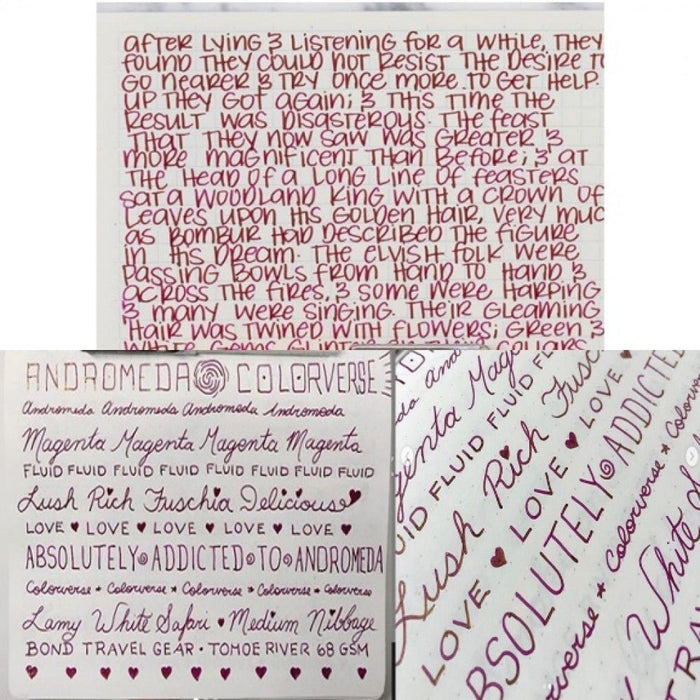 AFTER LYING & LISTENING FOR A WHILE, THEY
FOUND THEY COULD NOT RESIST THE DESIRE TO
GO NEARER & TRY ONCE MORE TO GET HELP.
UP THEY GOT AGAIN; & THIS TIME THE
RESULT WAS DISASTEROUS. THE FEAST
THAT THEY NOW SAW WAS GREATER &
MORE MAGNIFICENT THAN BEFORE; & AT
THE HEAD OF A LONG LINE OF FEASTERS
SAT A WOODLAND KING WITH A CROWN OF
LEAVES UPON HIS GOLDEN HAIR, VERY MUC
AS BOMBUR HAD DESCRIBED THE FIGURE
IN HIS DREAM. THE ELVISH FOLK WERE
PASSING BOWLS FROM HAND TO HAND &
ACROSS THE FIRES, & SOME WERE HARPING
& MANY WERE SINGING. THEIR GLEAMING
HAIR WAS TWINED WITH FLOWERS; GREEN &
WHITE GEMS
ANDROMEDA COLORVERSE
Andromeda Andromeda Andromeda Andromeda
Magenta Magenta Magenta Magenta
FLUID FLUID FLUID FLUID FLUID FLUID FLUID FLUID
Lush Rich Fuschia Delicious
LOVE ♥ LOVE ♥ LOVE ♥ LOVE ♥ LOVE ♥
ABSOLUTELY ADDICTED TO ANDROMEDA
Colorverse * Colorverse * Colorverse * Colorverse * Colorverse
Lamy White Safari • Medium Nibbage
BOND TRAVEL GEAR • TOMOE RIVER 68 GSM
Mage
enta
UID FLUID FLUID FLUID FL
Lush Rich Fusc
LOVE ♥ LOVE ♥ LOVE
BSOLUTELY ADDICTED
verse * Colorverse * Color
White